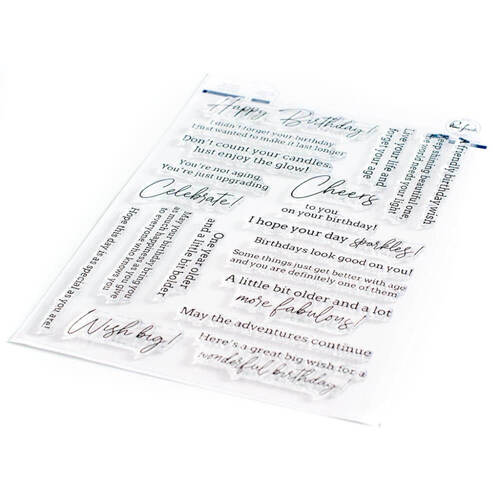 Happy Birthday!
I didn't forget your birthday.
I just wanted to make it last longer.
Don't count your candles.
Just enjoy the glow!
You're not aging.
You're just upgrading
Celebrate!
Cheers
to you
on your birthday!
I hope your day sparkles!
Birthdays look good on you!
Some things just get better with age
and you are definitely one of them
A little bit older and a lot
more fabulous!
May the adventures continue
Here's a great big wish for a
wonderful birthday!
Wish big!
Hope this day is as special as you are!
May your birthday bring you
as much happiness as you give
to everyone who knows you
One year older
and a little bit bolder
Live your life and
forget your age
friendly birthday wish
Keep shining beautiful one,
world needs your light